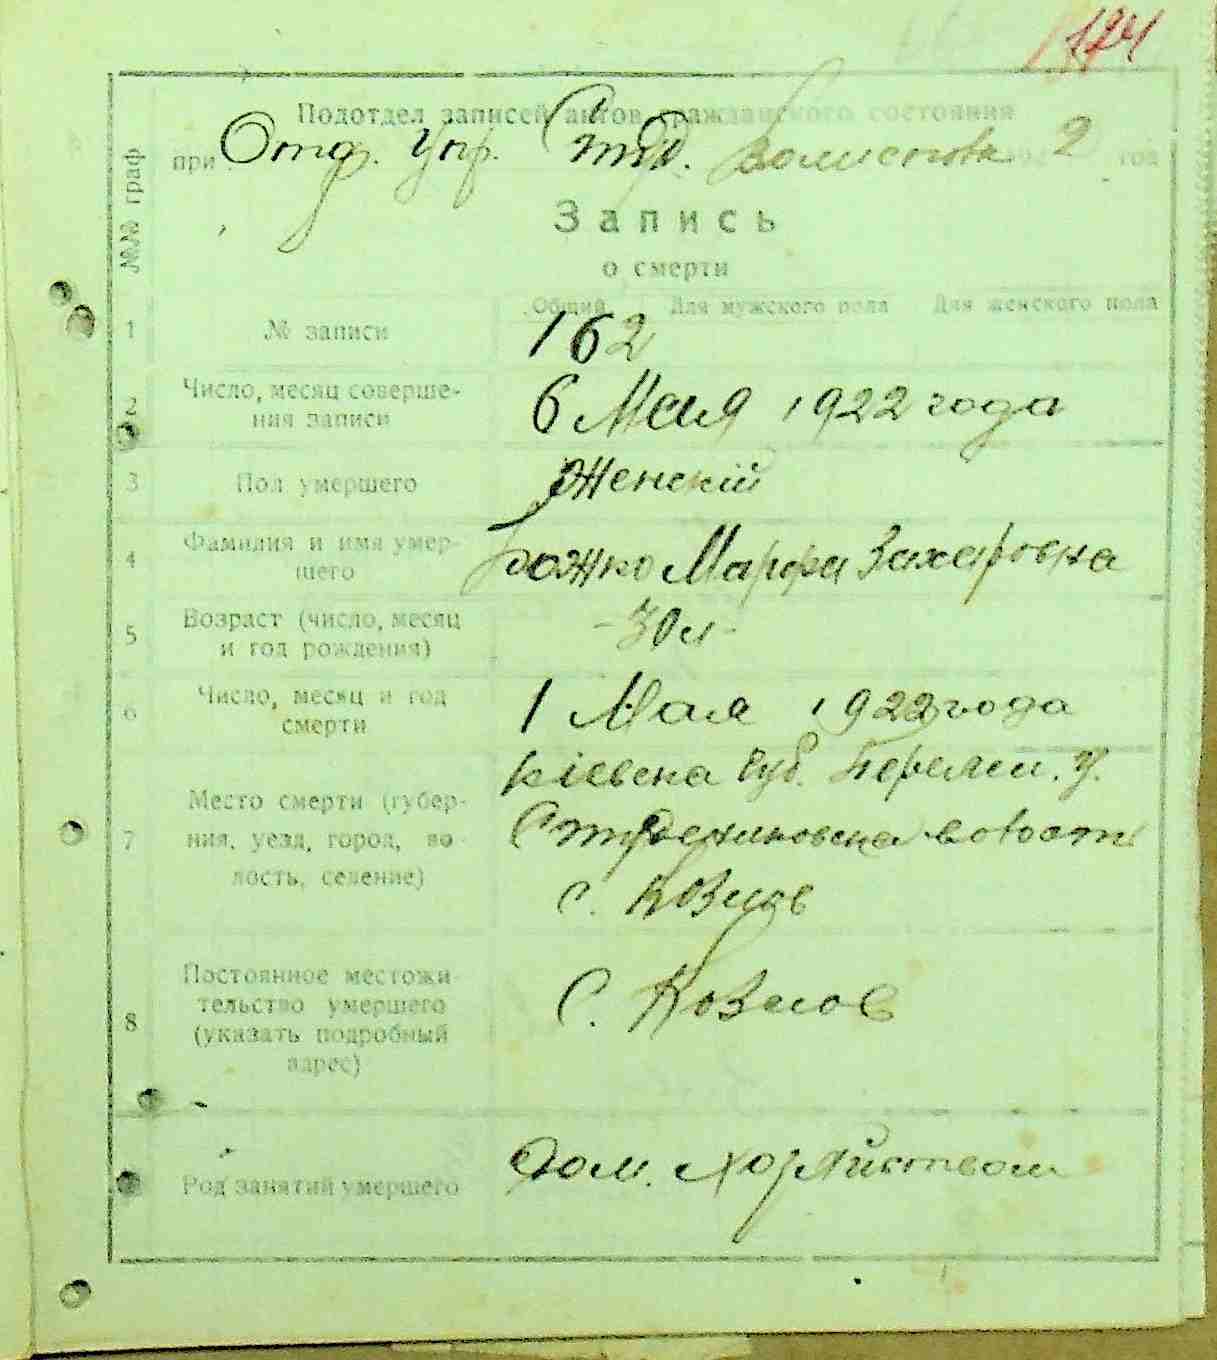 174
Подотдел записей актов гражданского состояния
при Отд. Упр. Студ. Волисполк 2 год
№№ граф
Запись
о смерти
Общий Для мужского пола Для женского пола
1 № записи 162
2 Число, месяц соверше-
ния записи 6 Мая 1922 года
3 Пол умершего Женскій
4 Фамилия и имя умер-
шего Божко Марфа Захаровна
5 Возраст (число, месяц
и год рождения) -30 л-
6 Число, месяц и год
смерти 1 Мая 1922 года
7 Место смерти (губер-
ния, уезд, город, во-
лость, селение)
Кіевска Губ. у.
волости
с. Козлов
8 Постоянное местожи-
тельство умершего
(указать подробный
адрес)
С. Козлов
Род занятий умершего Дом.